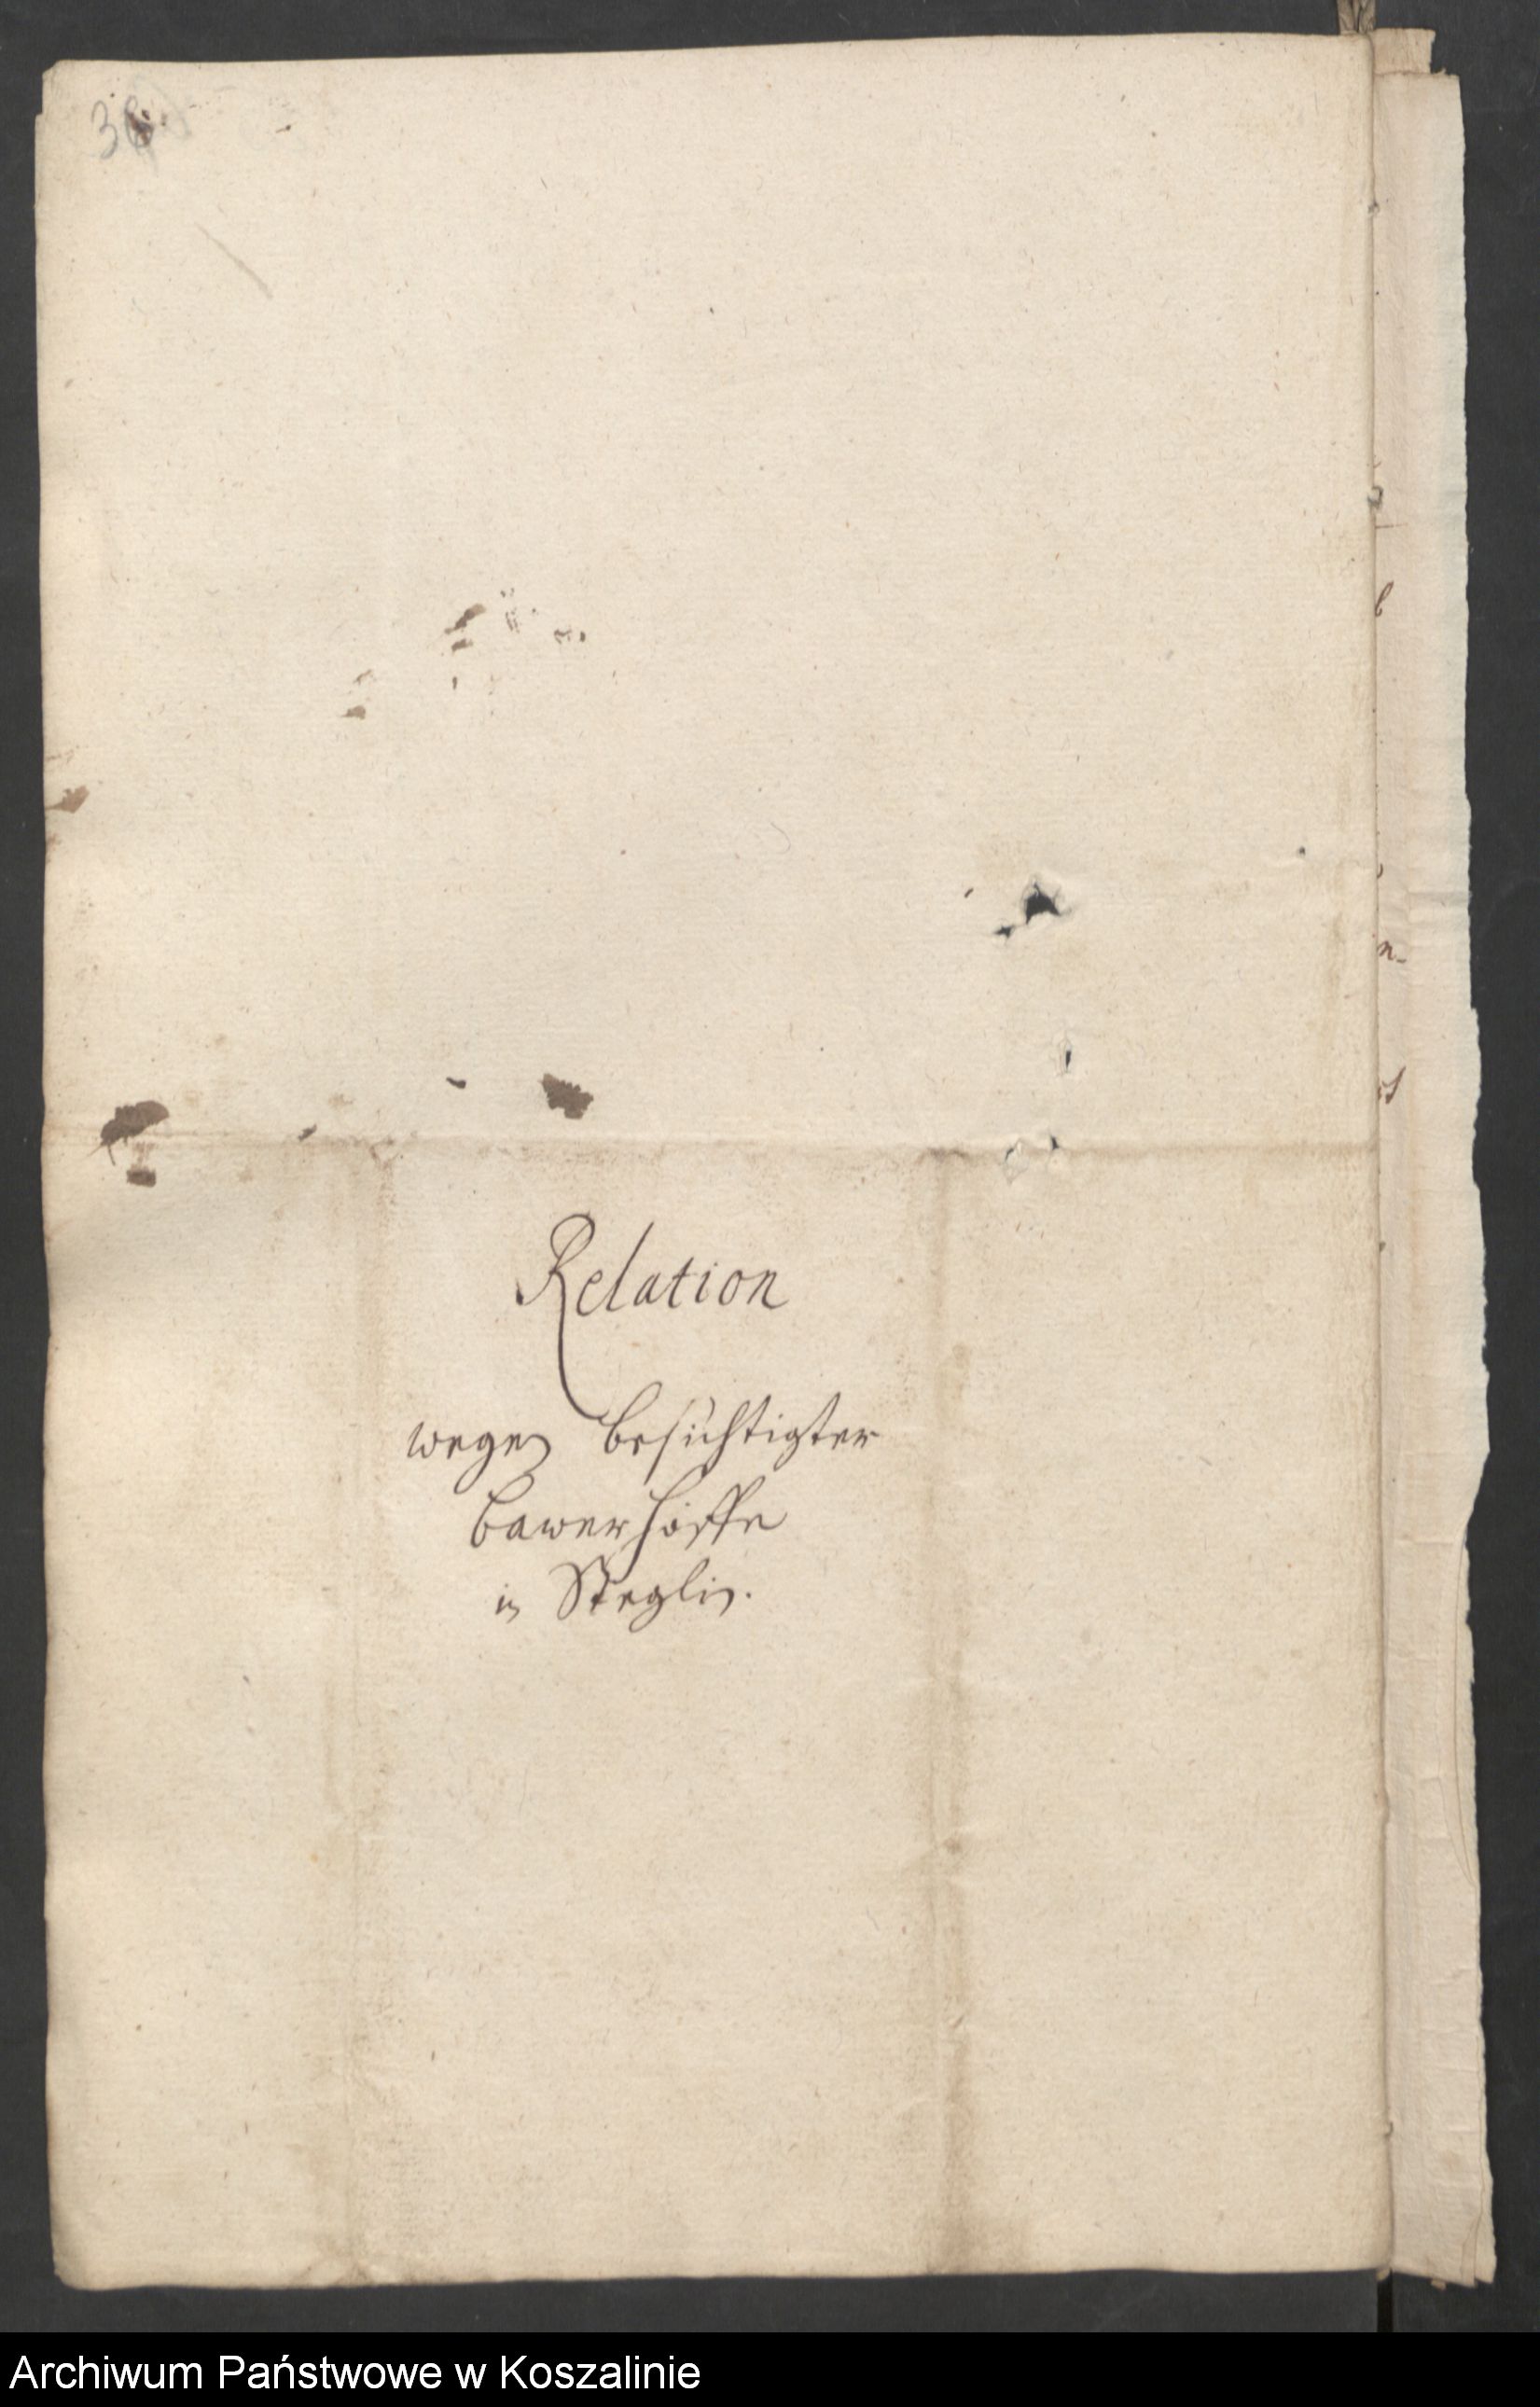 Relation
wegen besichtigter
Bawerhöffe
in Steglin.
Archiwum Państwowe w Koszalinie